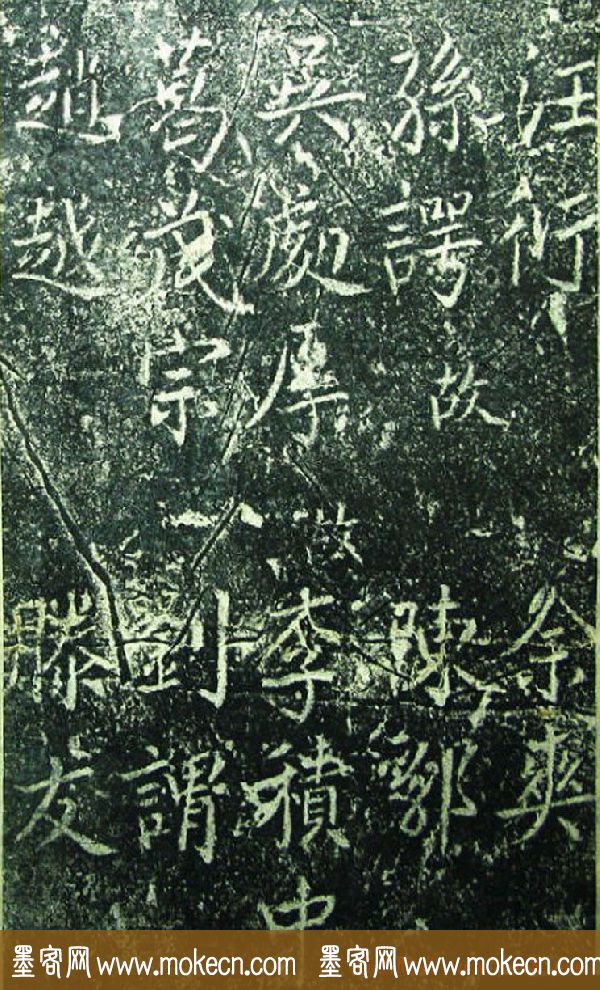 汪衍 余爽
孫諤 故 陳郛
吳處厚 故 李積中
葛茂宗 劉謂
趙越 滕友
墨客网 www.mokecn.com 墨客网 www.mokecn.com